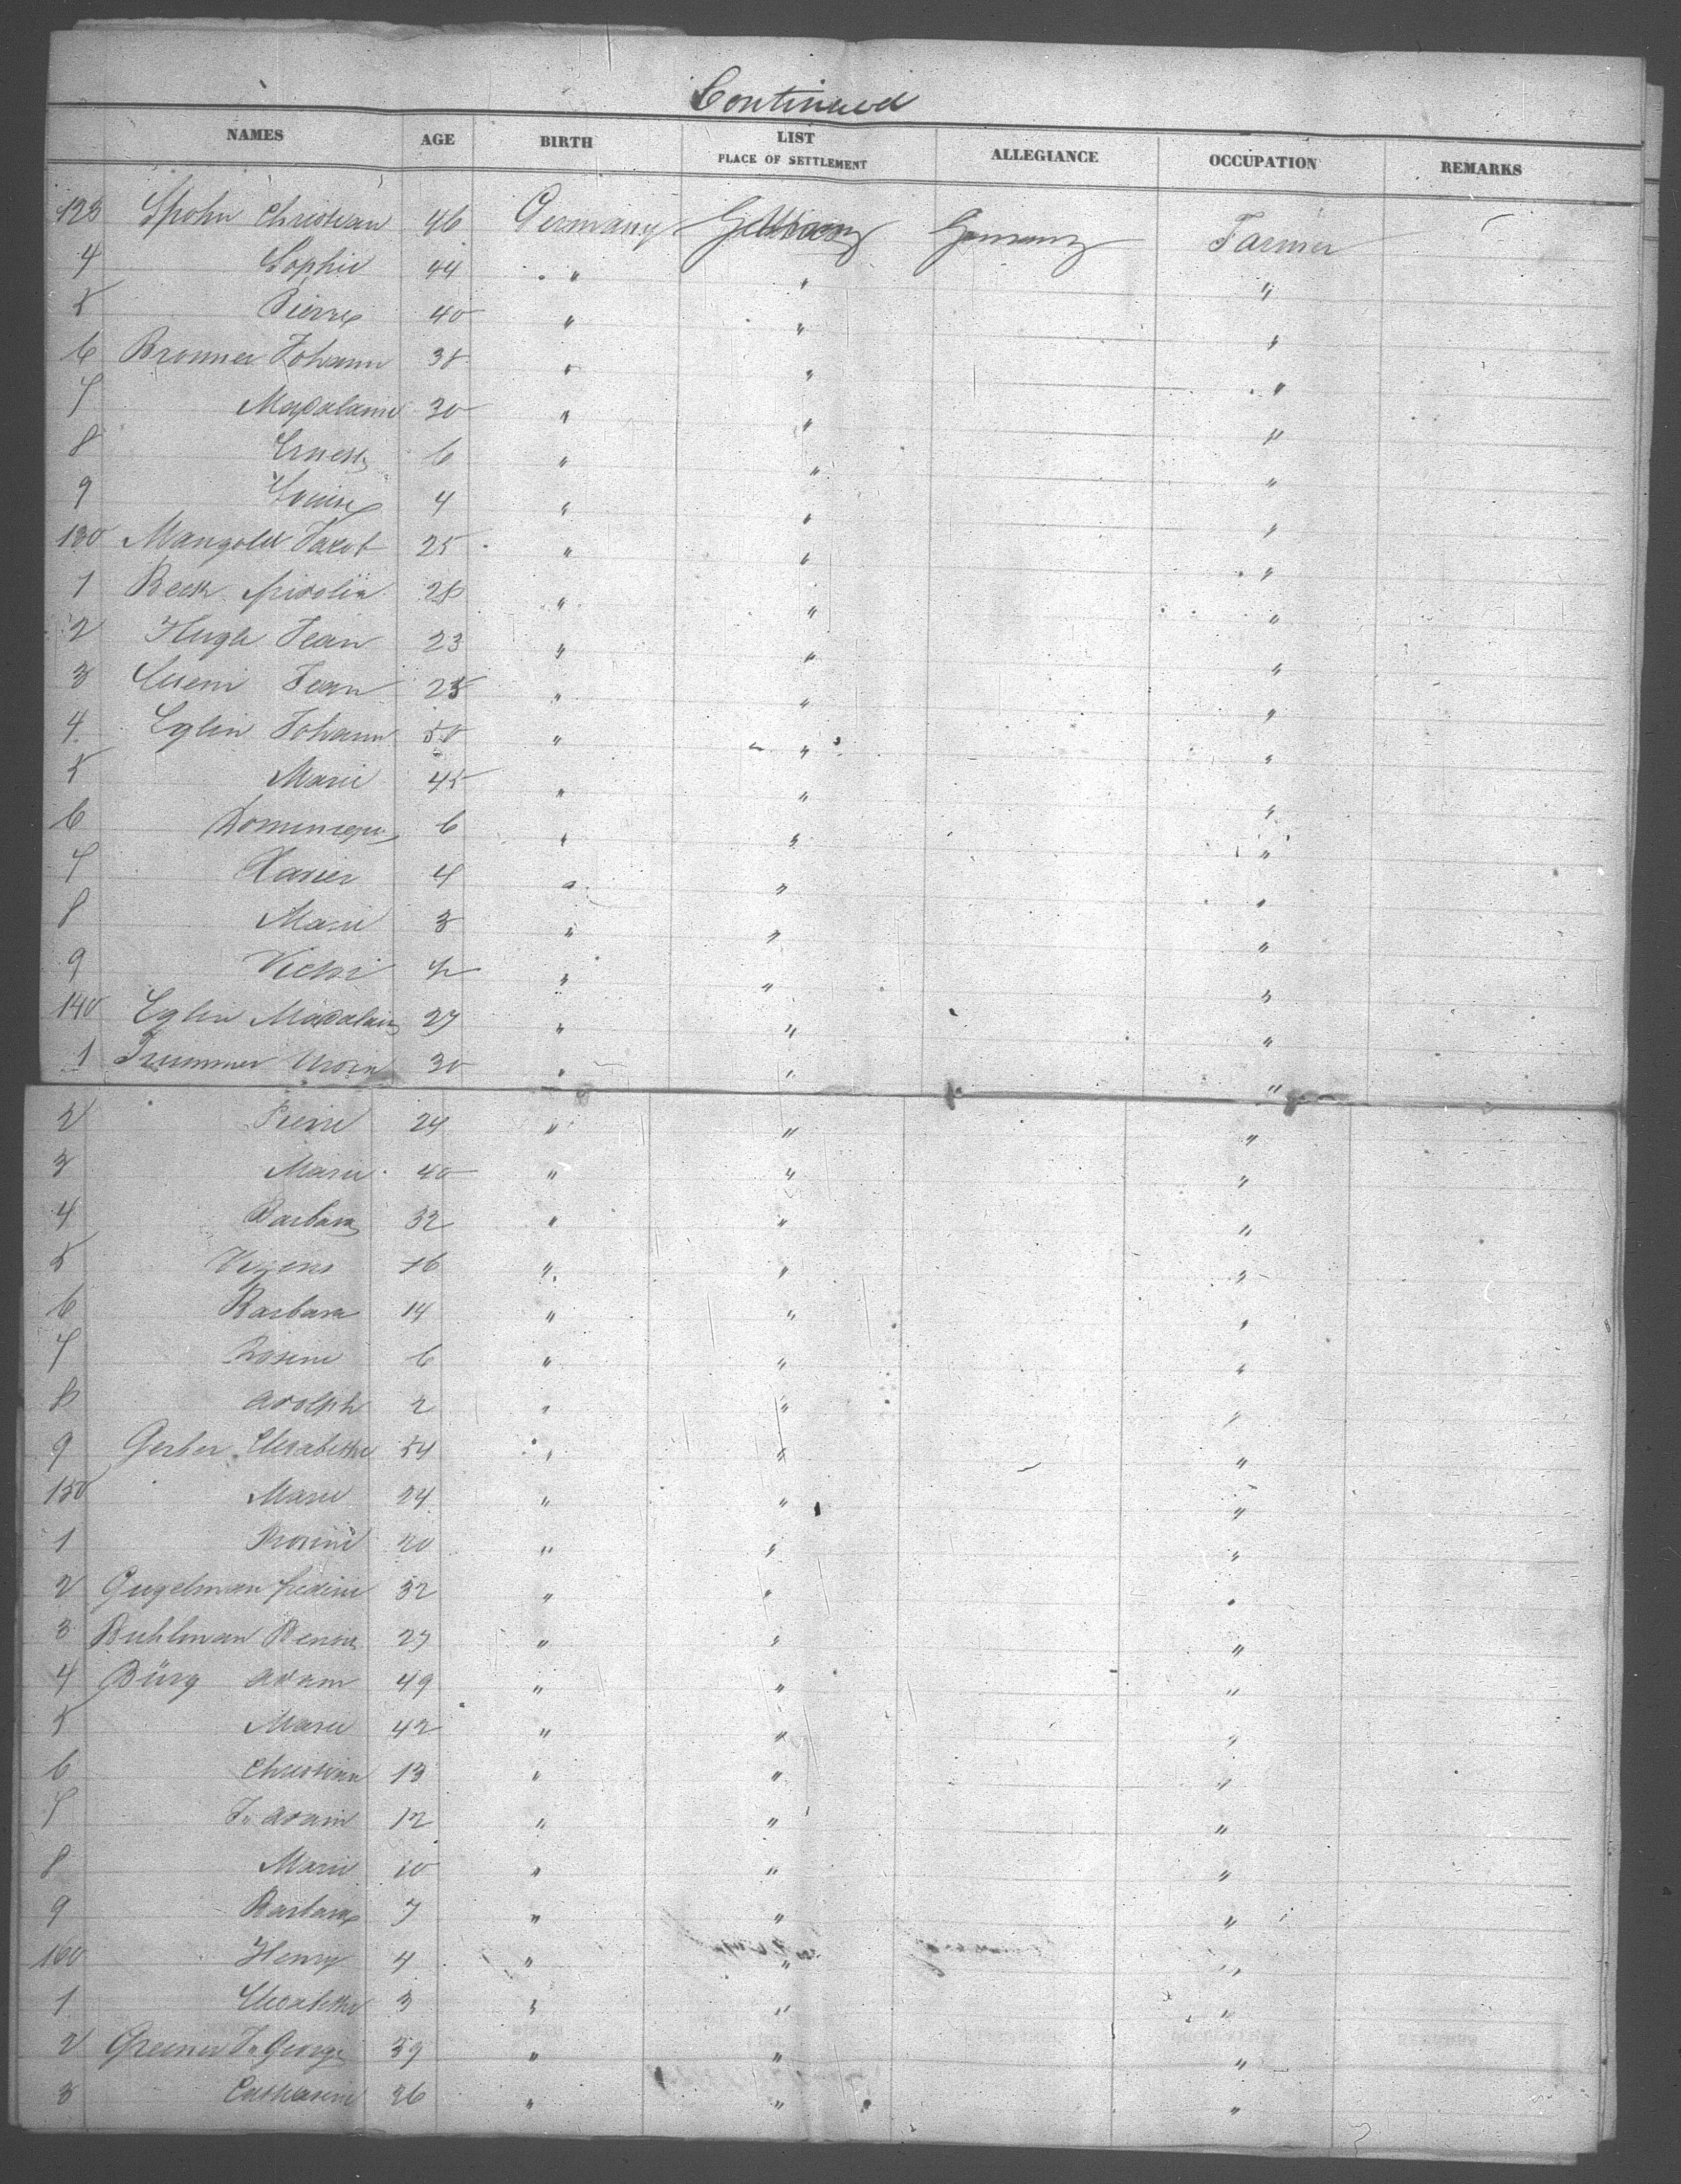 Continued
NAMES AGE BIRTH LIST PLACE OF SETTLEMENT ALLEGIANCE OCCUPATION REMARKS
123 Spohn Christian 46 Germany Germany Farmer
4 Sophie 44 " " "
5 Pierre 40 " " "
6 Bronner Johann 38 " " "
7 Madalaine 30 " " "
8 Ernest 6 " " "
9 Louise 4 " " "
130 Mangold Jacob 25 " " "
1 Beck 28 " " "
2 Jean 23 " " "
3 Jean 25 " " "
4 Eglin Johann 50 " " "
5 Marie 45 " " "
6 Dominique 6 " " "
7 Xavier 4 " " "
8 Marie 3 " " "
9 " " "
140 Eglin Madalain 27 " " "
1 Trummer 30 " " "
2 Pierre 24 " " "
3 Marie 40 " " "
4 Barbara 32 " " "
5 16 " " "
6 Barbara 14 " " "
7 Rosine 6 " " "
8 Adolph 2 " " "
9 Gerber Elisabethe 54 " " "
150 Marie 24 " " "
1 Rosine 20 " " "
2 Gugelman 32 " " "
3 Buhlman 27 " " "
4 Bürg Adam 49 " " "
5 Marie 42 " " "
6 Christian 13 " " "
7 Jn Adam 12 " " "
8 Marie 10 " " "
9 Barbara 7 " " "
160 Henry 4 " " "
1 Elisabethe 3 " " "
2 Greener Jn George 39 " " "
3 Catharine 26 " " "